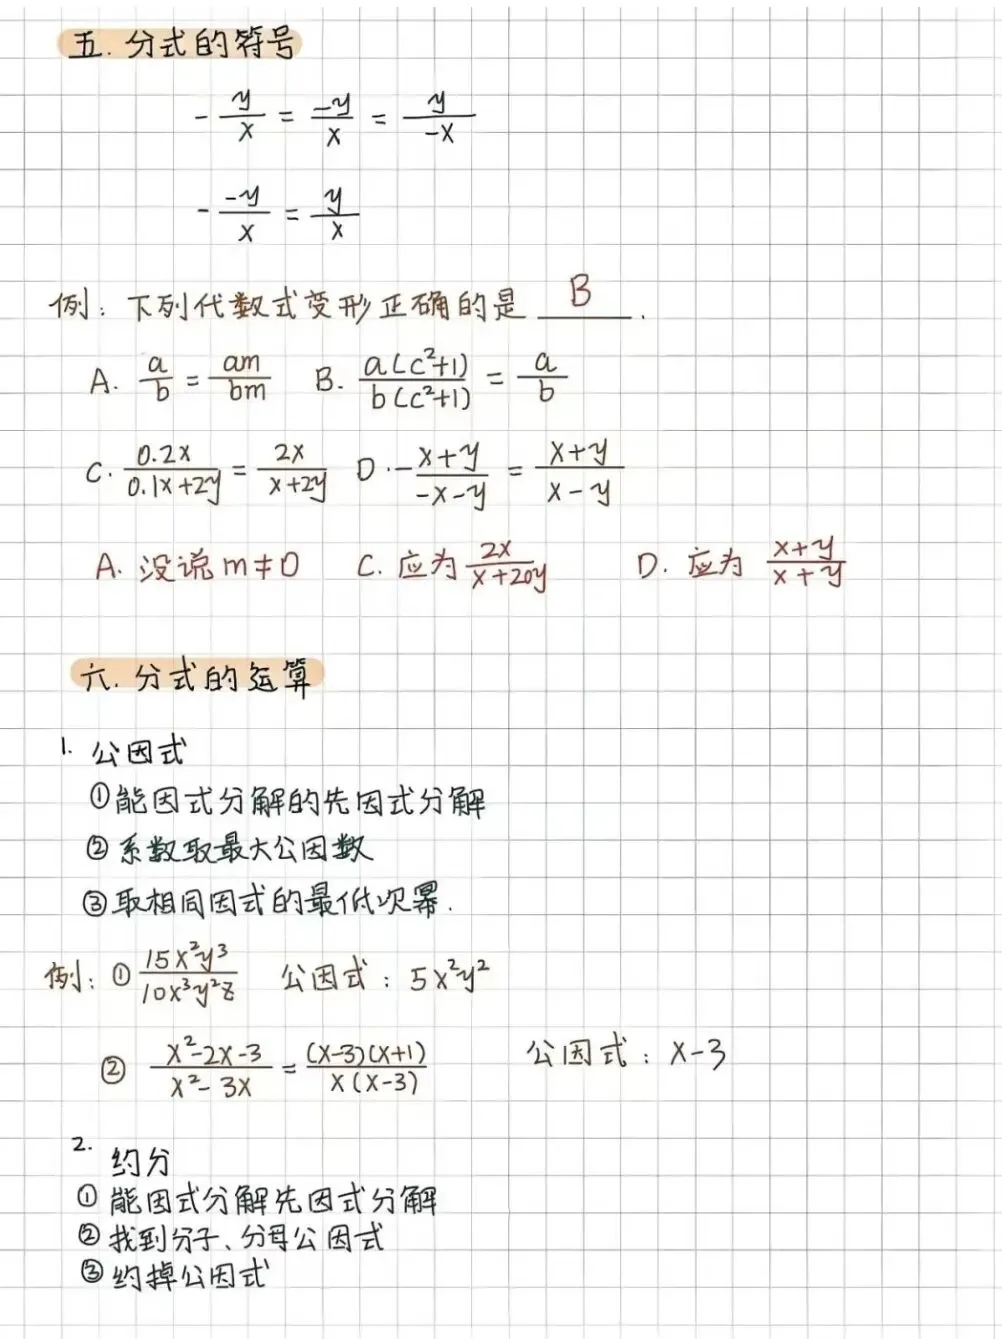 五. 分式的符号
-y/x = -y/x = y/-x
- -y/x = y/x
例: 下列代数式变形正确的是 B .
A. a/b = am/bm B. a(c²+1)/b(c²+1) = a/b
C. 0.2x/0.1x+2y = 2x/x+2y D. -x+y/-x-y = x+y/x-y
A. 没说m≠0 C. 应为 2x/x+20y D. 应为 x+y/x+y
六. 分式的运算
1. 公因式
①能因式分解的先因式分解
②系数取最大公因数
③取相同因式的最低次幂.
例: ① 15x²y³/10x³y²z 公因式: 5x²y²
② x²-2x-3/x²-3x = (x-3)(x+1)/x(x-3) 公因式: x-3
2. 约分
① 能因式分解先因式分解
② 找到分子、分母公因式
③ 约掉公因式